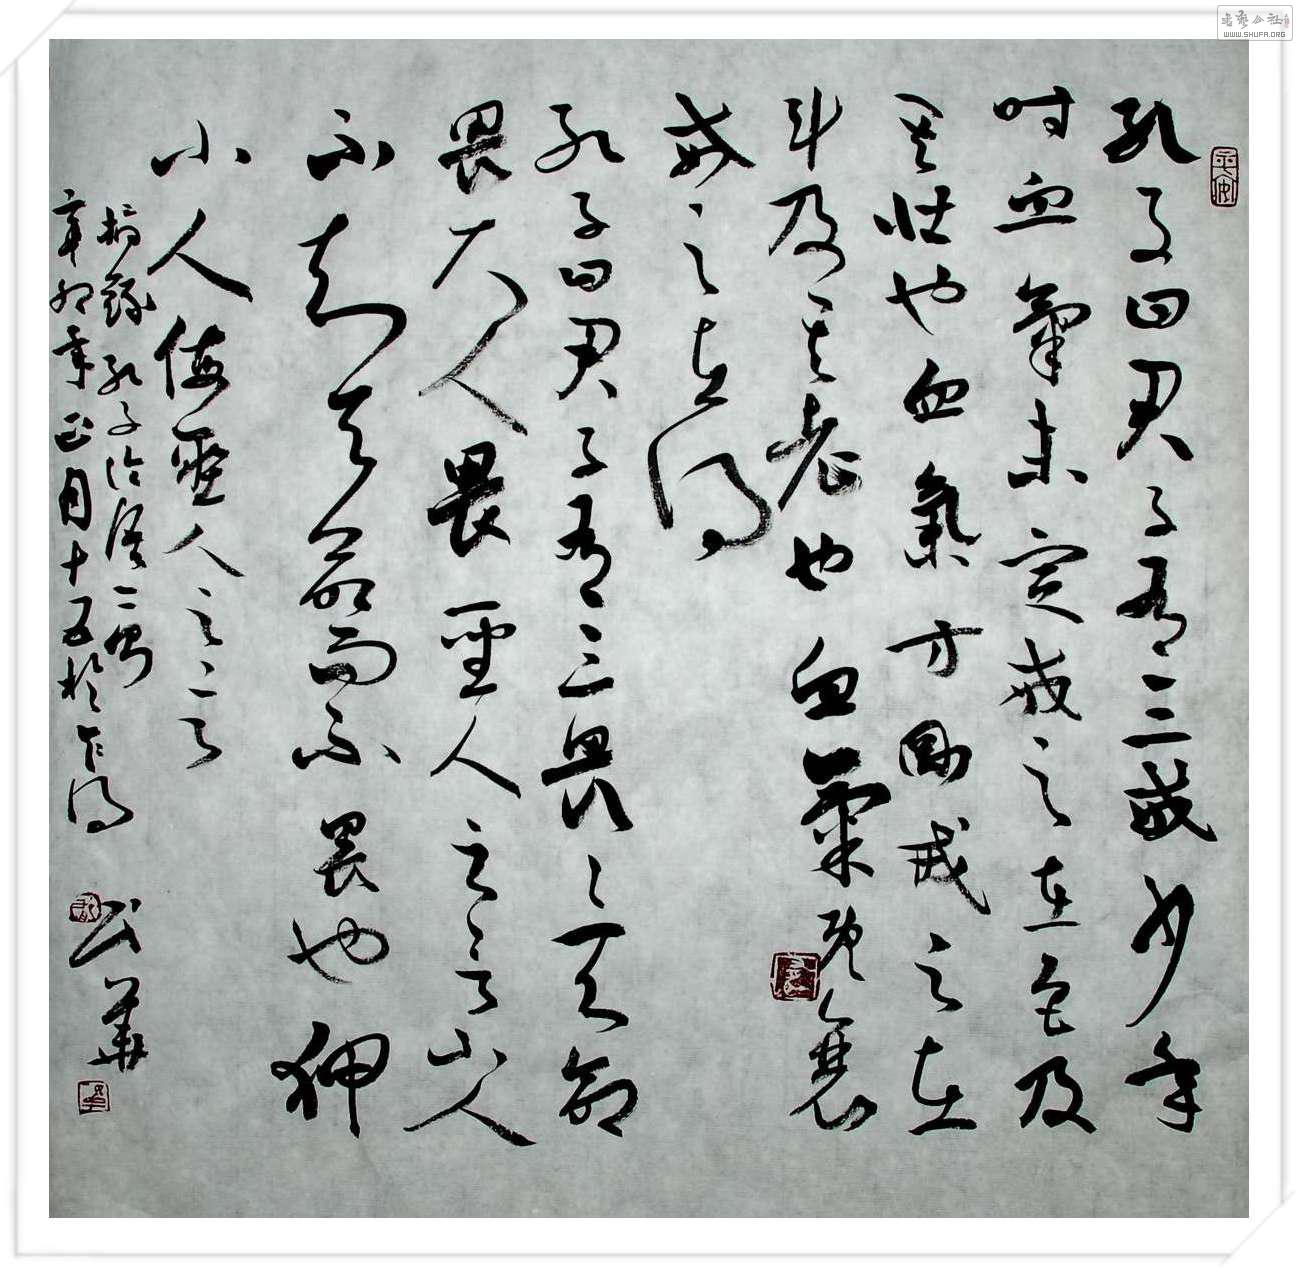 孔子曰君子有三戒少年
时血氣未定戒之在色及
其壯也血氣方剛戒之在
斗及其老也血氣既衰
戒之在得
孔子曰君子有三畏畏天命
畏大人畏聖人之言小人
不知天命而不畏也狎
小人侮聖人之言
摘錄孔子论语二則
辛卯年正月十五於乍得 武華
书艺公社
WWW.SHUFA.ORG